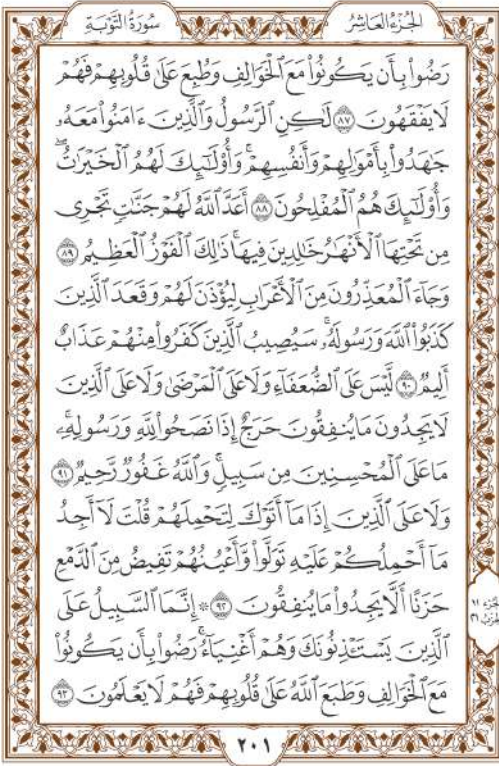 سُورَةُ التَّوْبَةِ
الجُزْءُ العَاشِرُ
رَضُواْ بِأَن يَكُونُواْ مَعَ ٱلْخَوَالِفِ وَطُبِعَ عَلَىٰ قُلُوبِهِمْ فَهُمْ
لَا يَفْقَهُونَ ٨٧ لَٰكِنِ ٱلرَّسُولُ وَٱلَّذِينَ ءَامَنُواْ مَعَهُۥ
جَٰهَدُواْ بِأَمْوَٰلِهِمْ وَأَنفُسِهِمْۚ وَأُوْلَٰٓئِكَ لَهُمُ ٱلْخَيْرَٰتُۖ
وَأُوْلَٰٓئِكَ هُمُ ٱلْمُفْلِحُونَ ٨٨ أَعَدَّ ٱللَّهُ لَهُمْ جَنَّٰتٍ تَجْرِى
مِن تَحْتِهَا ٱلْأَنْهَٰرُ خَٰلِدِينَ فِيهَاۚ ذَٰلِكَ ٱلْفَوْزُ ٱلْعَظِيمُ ٨٩
وَجَآءَ ٱلْمُعَذِّرُونَ مِنَ ٱلْأَعْرَابِ لِيُؤْذَنَ لَهُمْ وَقَعَدَ ٱلَّذِينَ
كَذَبُواْ ٱللَّهَ وَرَسُولَهُۥۚ سَيُصِيبُ ٱلَّذِينَ كَفَرُواْ مِنْهُمْ عَذَابٌ
أَلِيمٌ ٩٠ لَّيْسَ عَلَى ٱلضُّعَفَآءِ وَلَا عَلَى ٱلْمَرْضَىٰ وَلَا عَلَى ٱلَّذِينَ
لَا يَجِدُونَ مَا يُنفِقُونَ حَرَجٌ إِذَا نَصَحُواْ لِلَّهِ وَرَسُولِهِۦۚ
مَا عَلَى ٱلْمُحْسِنِينَ مِن سَبِيلٍۚ وَٱللَّهُ غَفُورٌ رَّحِيمٌ ٩١
وَلَا عَلَى ٱلَّذِينَ إِذَا مَآ أَتَوْكَ لِتَحْمِلَهُمْ قُلْتَ لَآ أَجِدُ
مَآ أَحْمِلُكُمْ عَلَيْهِ تَوَلَّواْ وَّأَعْيُنُهُمْ تَفِيضُ مِنَ ٱلدَّمْعِ
حَزَنًا أَلَّا يَجِدُواْ مَا يُنفِقُونَ ٩٢ ۞ إِنَّمَا ٱلسَّبِيلُ عَلَى
ٱلَّذِينَ يَسْتَـْٔذِنُونَكَ وَهُمْ أَغْنِيَآءُۚ رَضُواْ بِأَن يَكُونُواْ
مَعَ ٱلْخَوَالِفِ وَطَبَعَ ٱللَّهُ عَلَىٰ قُلُوبِهِمْ فَهُمْ لَا يَعْلَمُونَ ٩٣
٢٠١